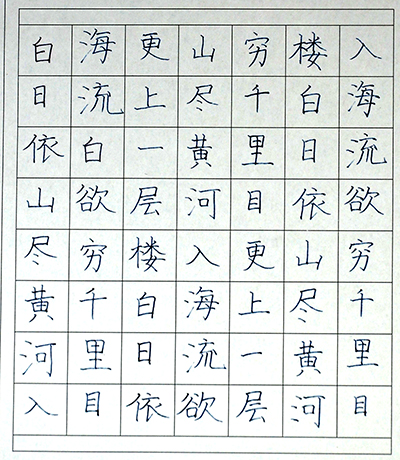 白日依山尽黄河入
海流白欲穷千里目
更上一层楼白日依
山尽黄河入海流欲
穷千里目更上一层
楼白日依山尽黄河
入海流欲穷千里目